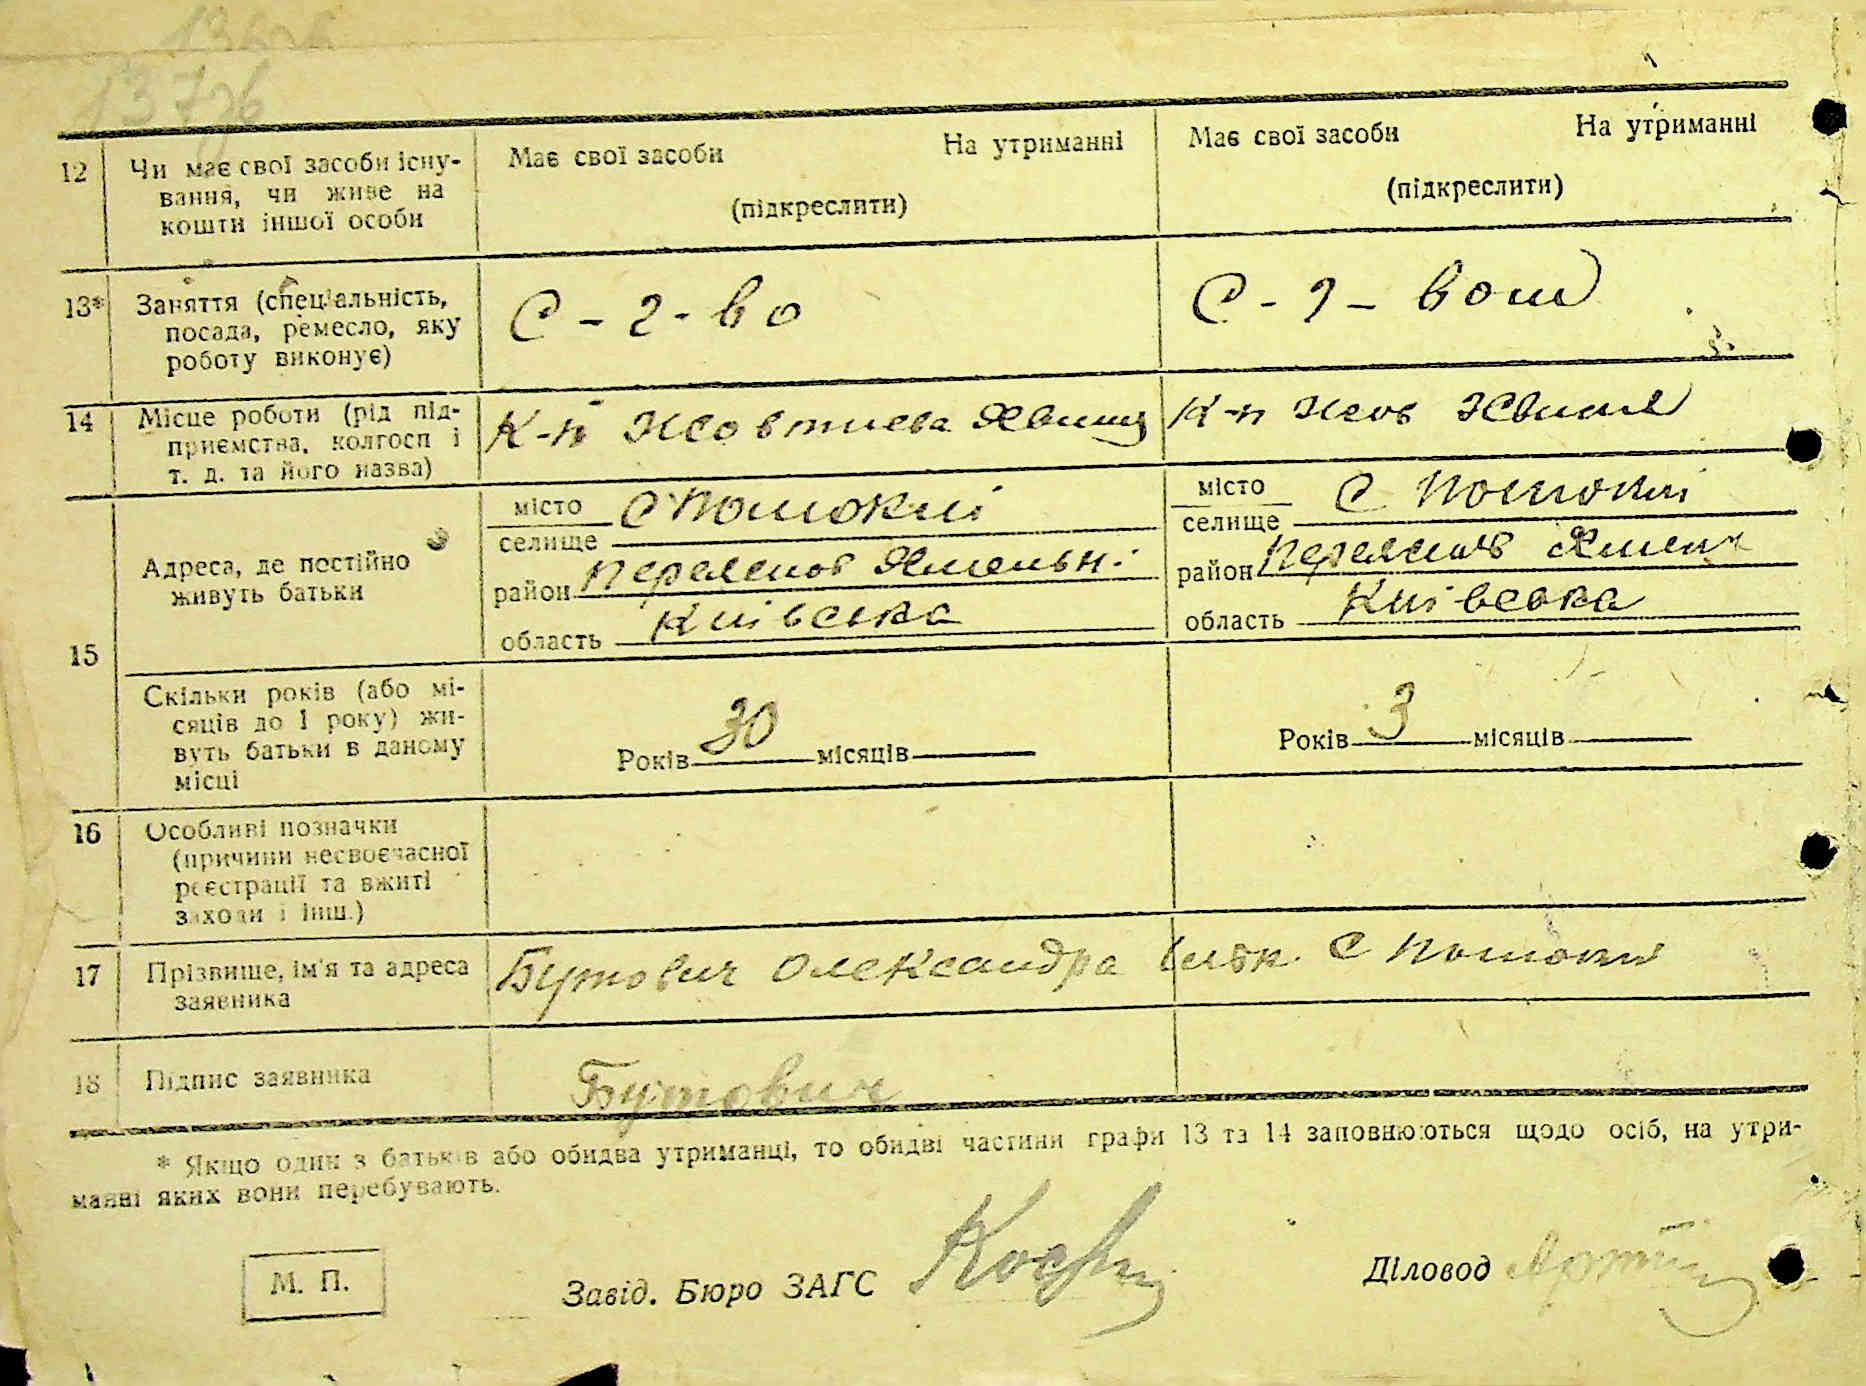 137зв
12 Чи має свої засоби існу-
вання, чи живе на
кошти іншої особи
Має свої засоби На утриманні
(підкреслити)
Має свої засоби На утриманні
(підкреслити)
13* Заняття (спеціальність,
посада, ремесло, яку
роботу виконує)
С - г - во
С - г - во
14 Місце роботи (рід під-
приємства, колгосп і
т. д. та його назва)
К-п Жовтнева Хвиля
К-п Жов Хвиля
15 Адреса, де постійно
живуть батьки
місто С Потокии
селище
район Переяслов Хмельн.
область Київська
місто С Потокии
селище
район Переяслов Хмельн
область Київська
Скільки років (або мі-
сяців до 1 року) жи-
вуть батьки в даному
місці
Років 30 місяців
Років 3 місяців
16 Особливі позначки
(причини несвоєчасної
реєстрації та вжиті
заходи і інш.)
17 Прізвище, ім'я та адреса
заявника
Бутович Олександра С Потокии
18 Підпис заявника
Бутович
* Якщо один з батьків або обидва утриманці, то обидві частини графи 13 та 14 заповнюються щодо осіб, на утри-
манні яких вони перебувають.
М. П.
Завід. Бюро ЗАГС
Діловод